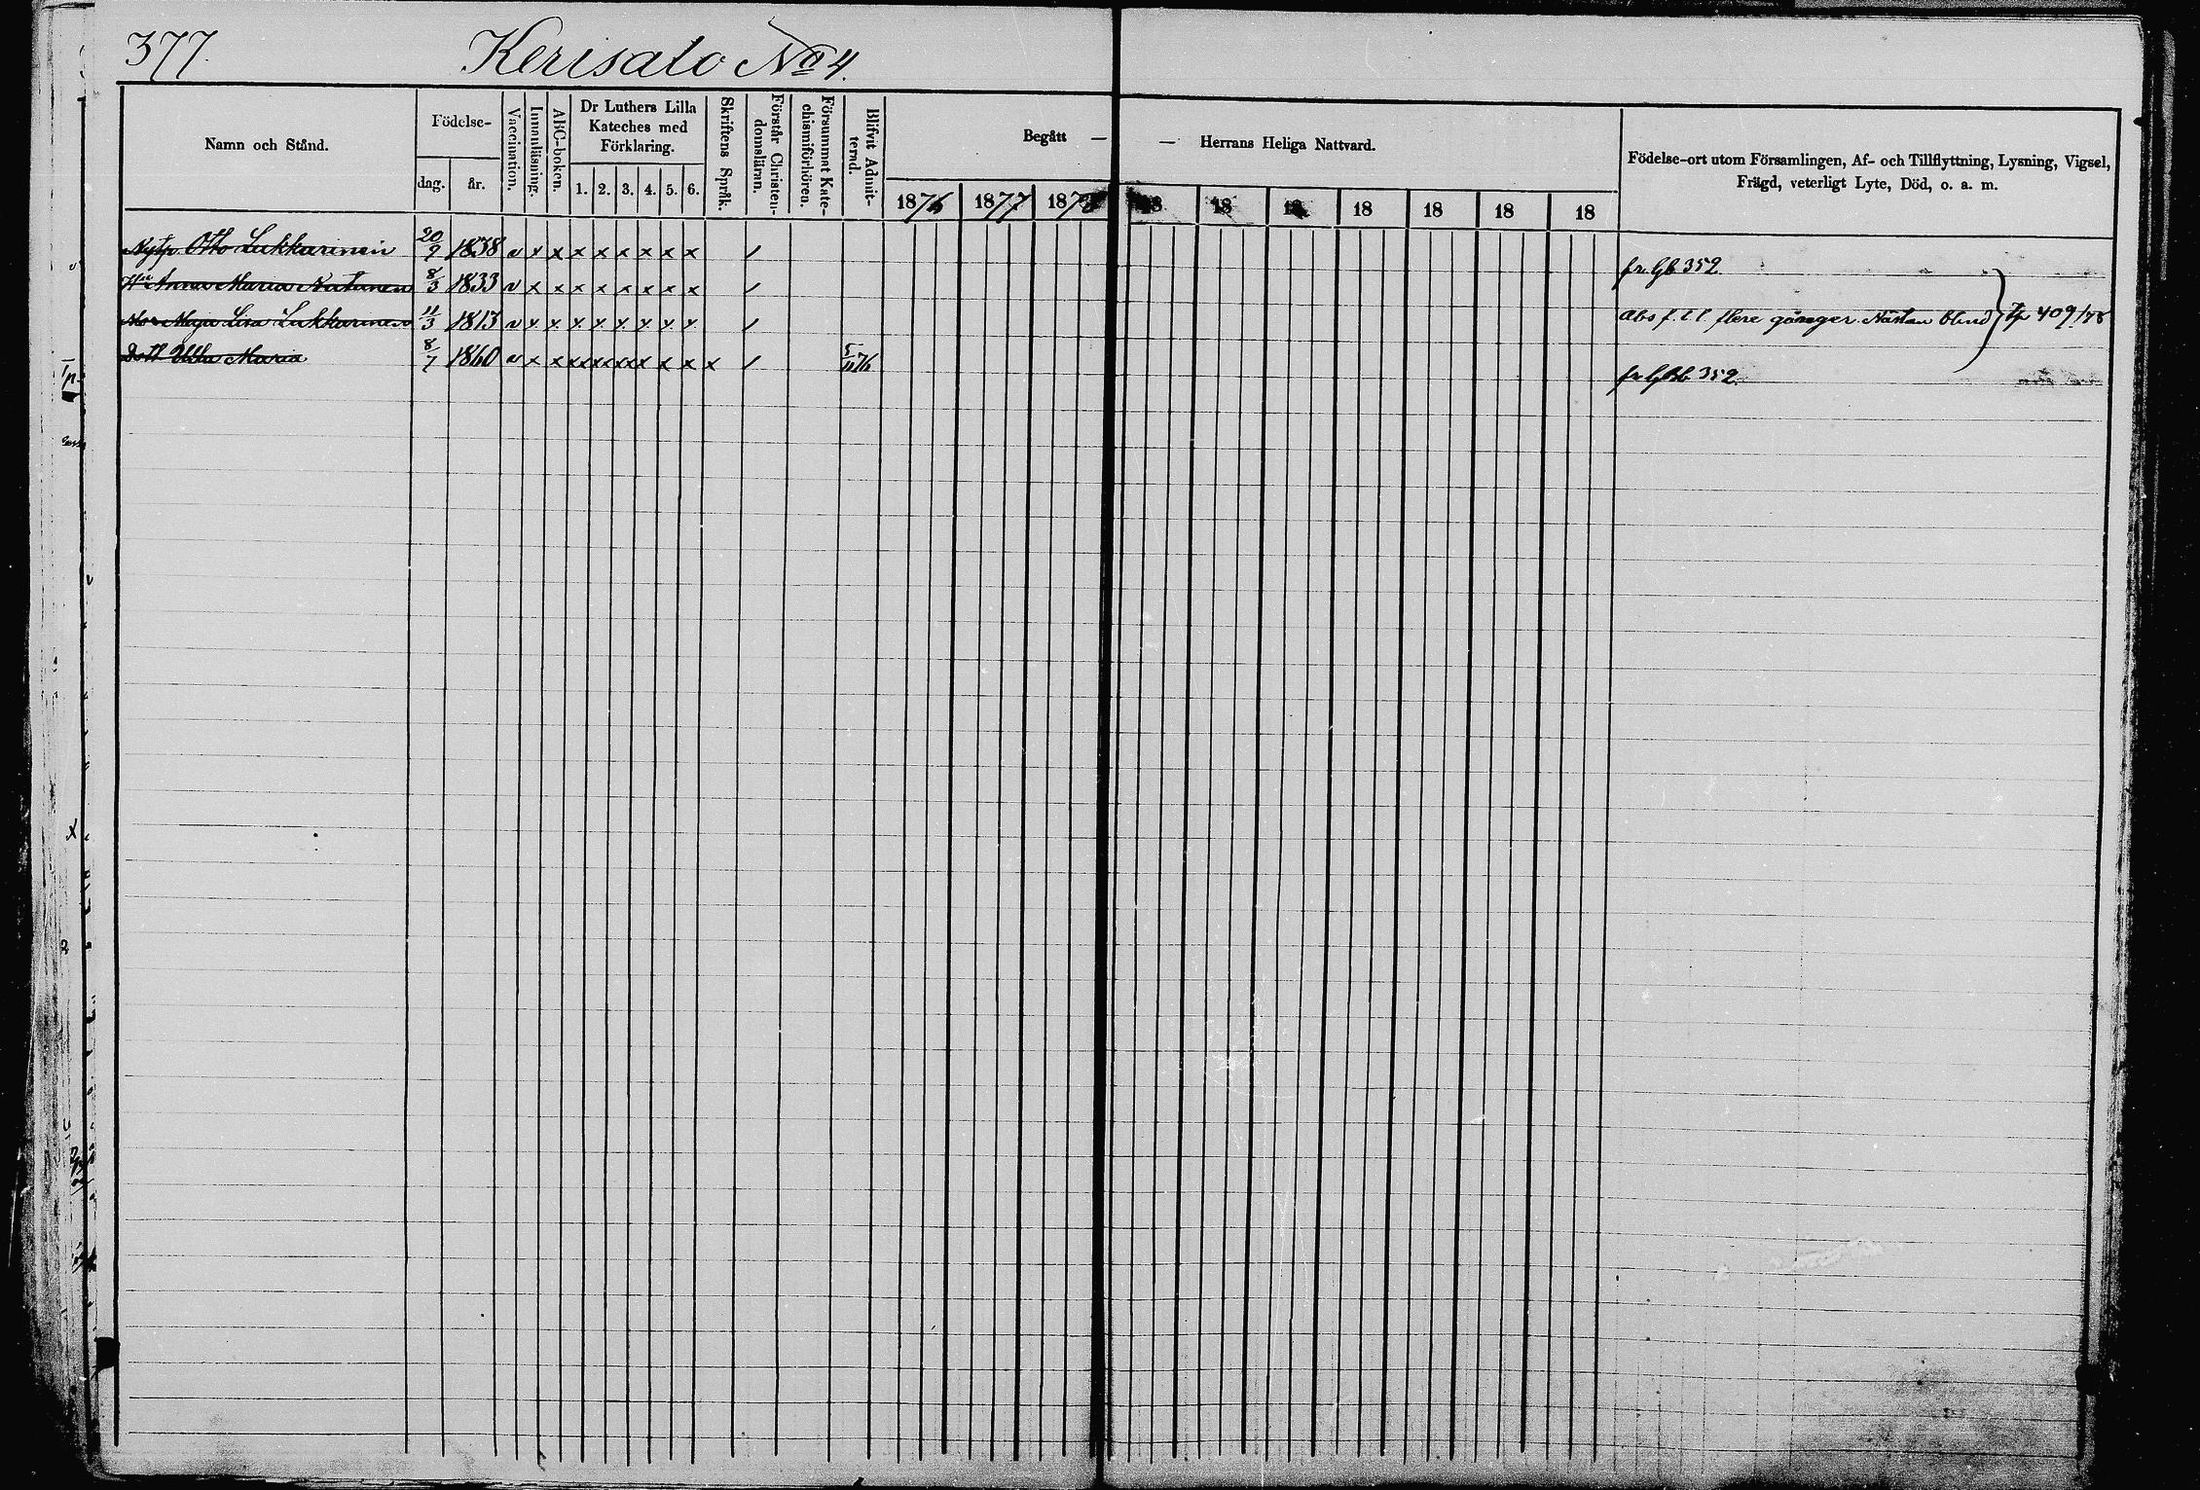 377. Kerisalo No 4.
Namn och Stånd.
Födelse-
dag. år.
Vaccination.
Innanläsning.
ABC-boken.
Dr Luthers Lilla
Kateches med
Förklaring.
1. 2. 3. 4. 5. 6.
Skriftens Språk.
Förstår Christen-
domsläran.
Försummat Kate-
chismiförhören.
Blifvit Admit-
terad.
Begått — — Herrans Heliga Nattvard.
1876 1877 1878 18 18 18 18 18 18 18
Födelse-ort utom Församlingen, Af- och Tillflyttning, Lysning, Vigsel,
Frägd, veterligt Lyte, Död, o. a. m.
Otto Lukkarinen 20/9 1838 v x x x x x x x x / fr. Gb 352
Hu Anna Maria Nutunen 8/3 1833 v x x x x x x x x /
Maja Lisa Lukkarinen 11/3 1813 v x x x x x x x x / Abs f. l l flere gånger. Nästan blind } Tp 409/78
Dott Ulla Maria 8/7 1860 v x x x x x x x x x / 5/11 76 fr. Gbb 352